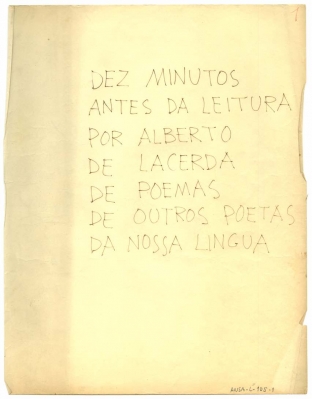 DEZ MINUTOS
ANTES DA LEITURA
POR ALBERTO
DE LACERDA
DE POEMAS
DE OUTROS POETAS
DA NOSSA LINGUA